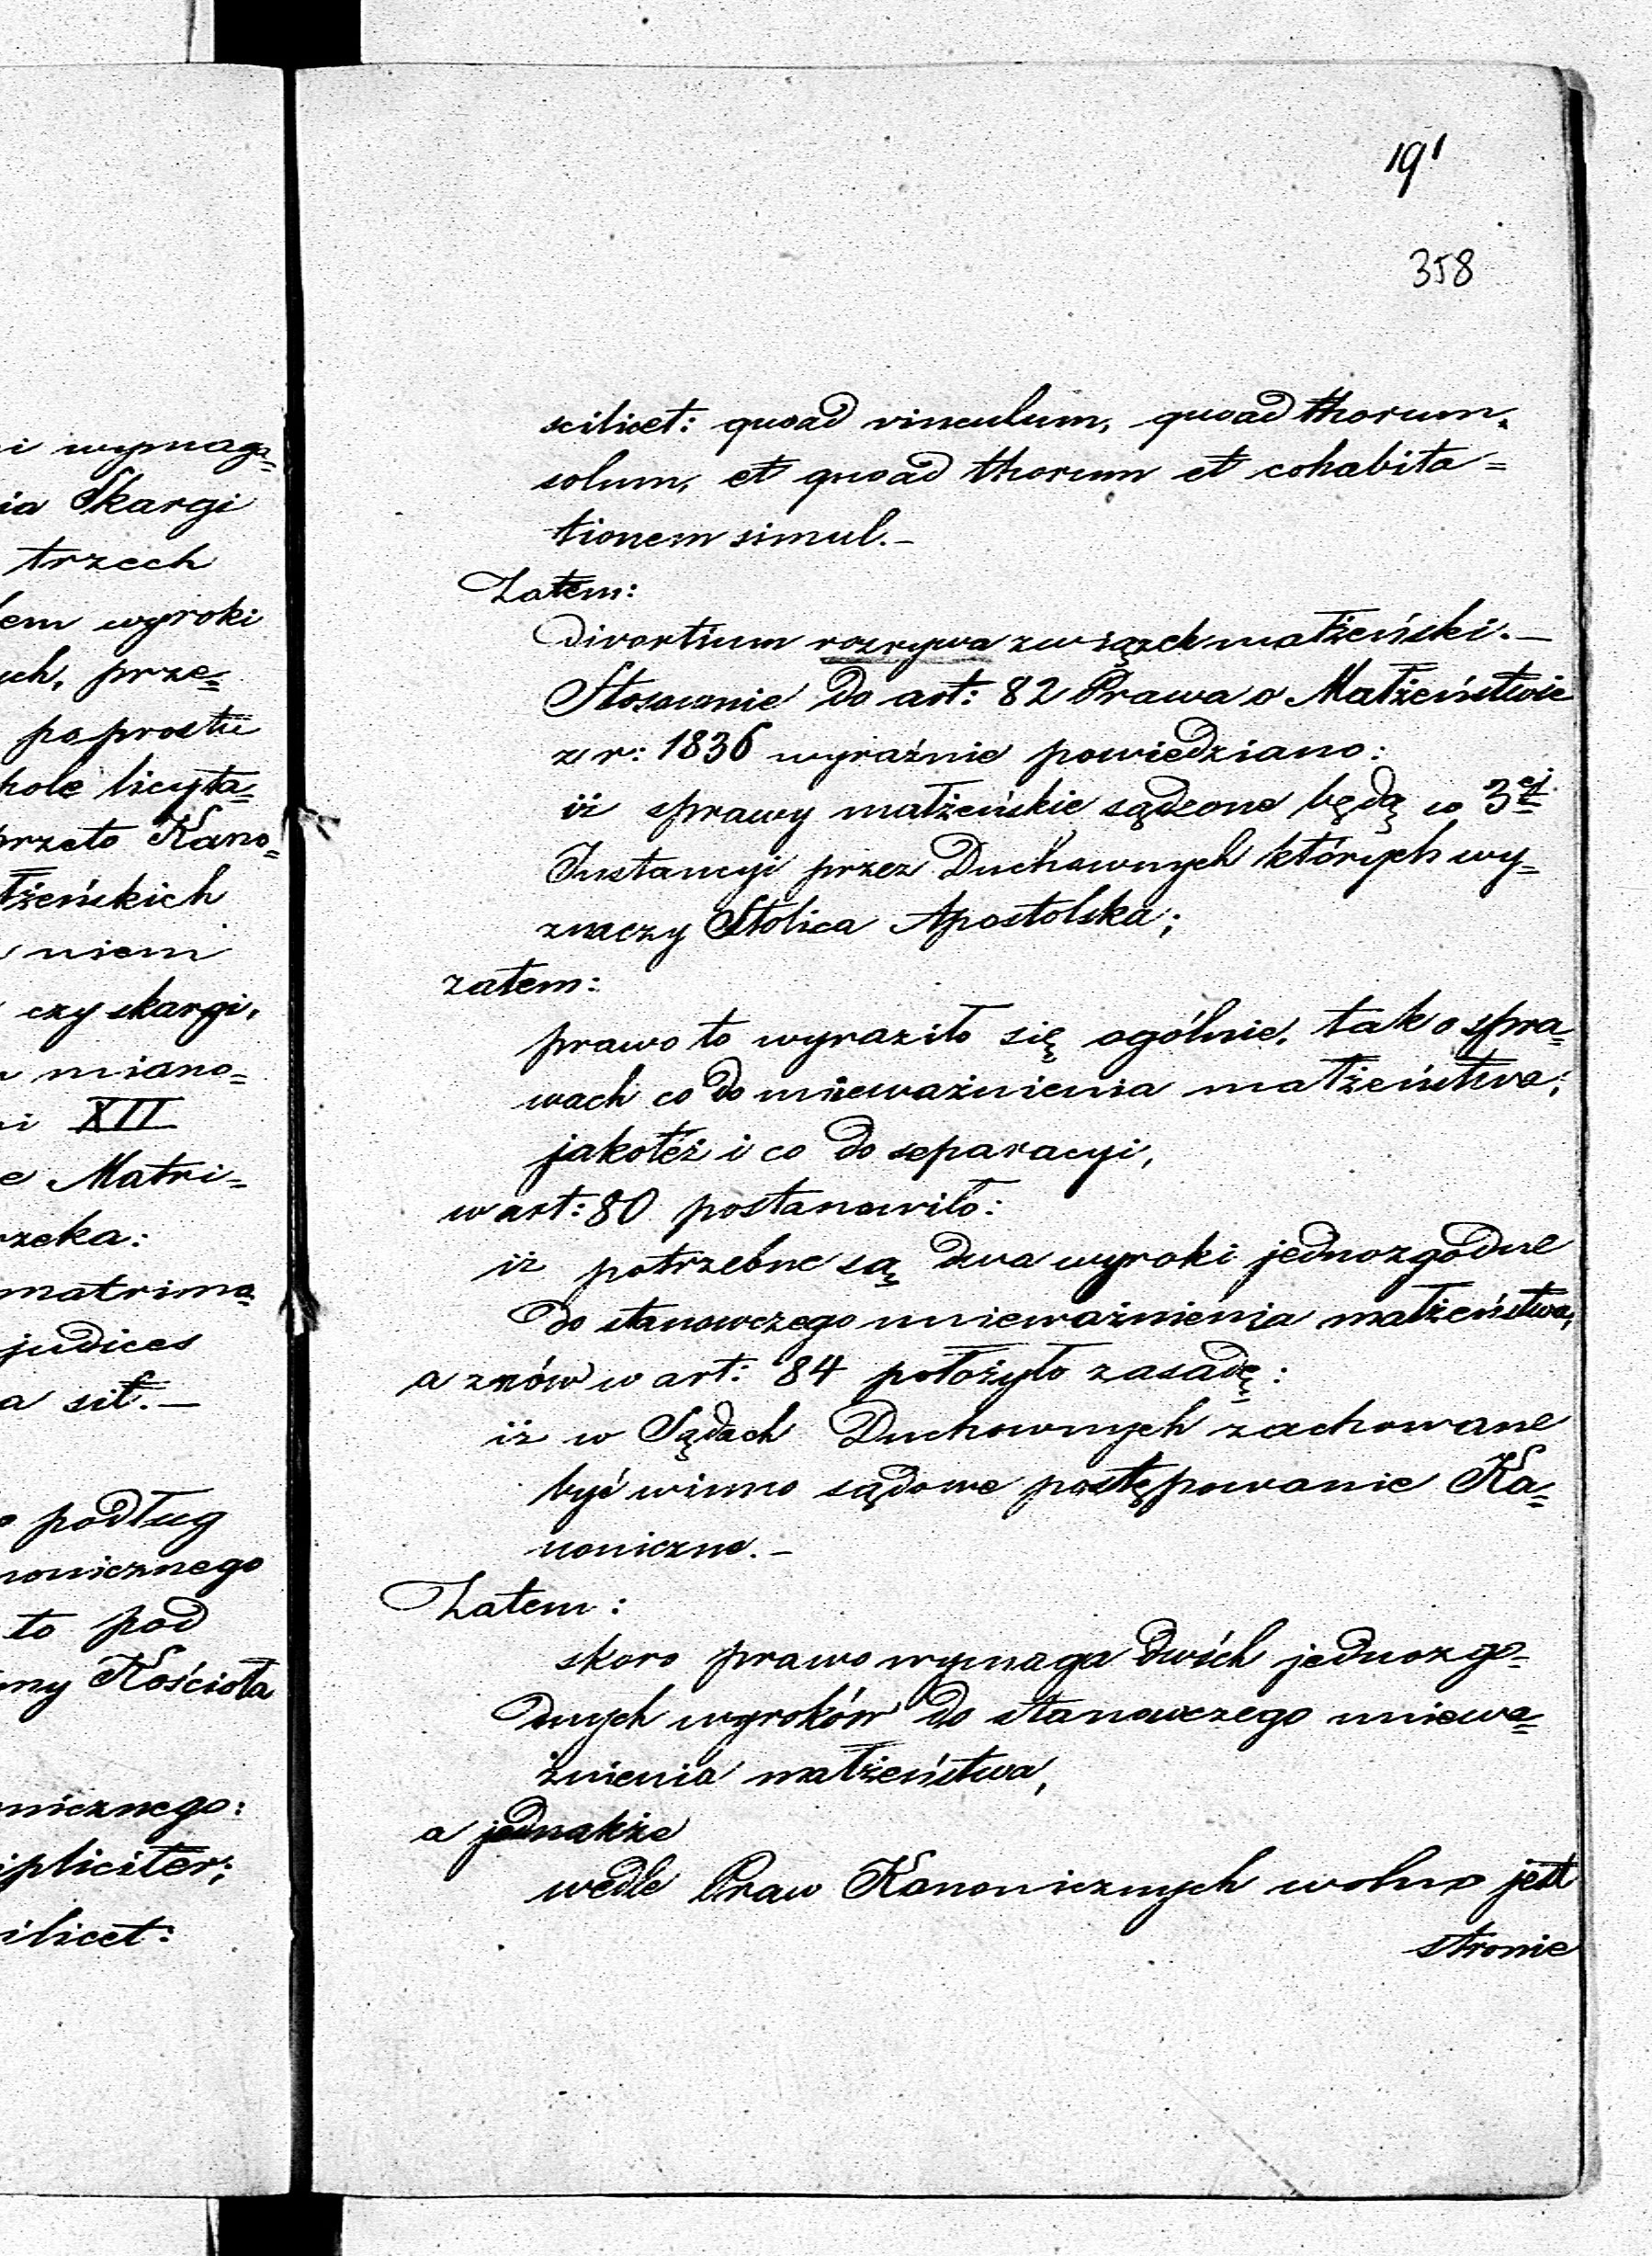 i wymaga=
ia Skargi
trzech
em wyroki
ych, prze=
po prostu
kole licyta=
przeto Kano=
łżeńskich
niem
czy skargi,
miano=
i XII
e Matri=
rzeka:
matrimo=
judices
a sit.—
podług
nonicznego
to pod
ny Kościoła
nicznego:
ipliciter;
ilicet:
191
358
scilicet: quoad vinculum, quoad thorum
solum, et quoad thorum et cohabita=
tionem simul.—
Zatem:
Divortium rozrywa związek małżeński.—
Stosownie do art: 82 Prawa o Małżeństwie
z r: 1836 wyraźnie powiedziano:
iż sprawy małżeńskie sądzone będą w 3ej
Instancyi przez Duchownych których wy=
znaczy Stolica Apostolska;
zatem:
prawo to wyraziło się ogólnie, tak o spra=
wach co do unieważnienia małżeństwa;
jakoteż i co do separacyi,
w art: 80 postanowiło:
iż potrzebne są dwa wyroki jednozgodne
do stanowczego unieważnienia małżeństwa,
a znów w art: 84 położyło zasadę:
iż w Sądach Duchownych zachowane
być winno sądowe postępowanie Ka=
noniczne.—
Zatem:
skoro prawo wymaga dwóch jednozgo=
dnych wyroków do stanowczego uniewa=
żnienia małżeństwa,
a jednakże
wedle Praw Kanonicznych wolno jest
stronie